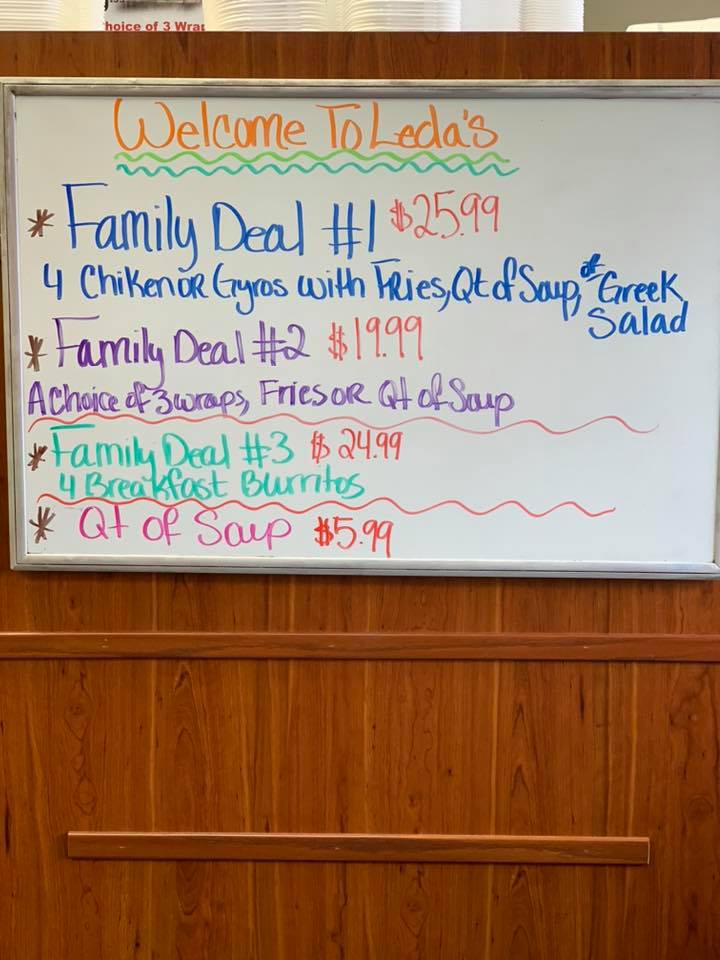 hoice of 3 Wrap
Welcome To Leda's
* Family Deal #1 $25.99
4 Chiken OR Gyros with FRies, Qt of Soup, or Greek
Salad
* Family Deal #2 $19.99
A Choice of 3 wraps, Fries OR Qt of Soup
* Family Deal #3 $24.99
4 Breakfast Burritos
* Qt of Soup $5.99